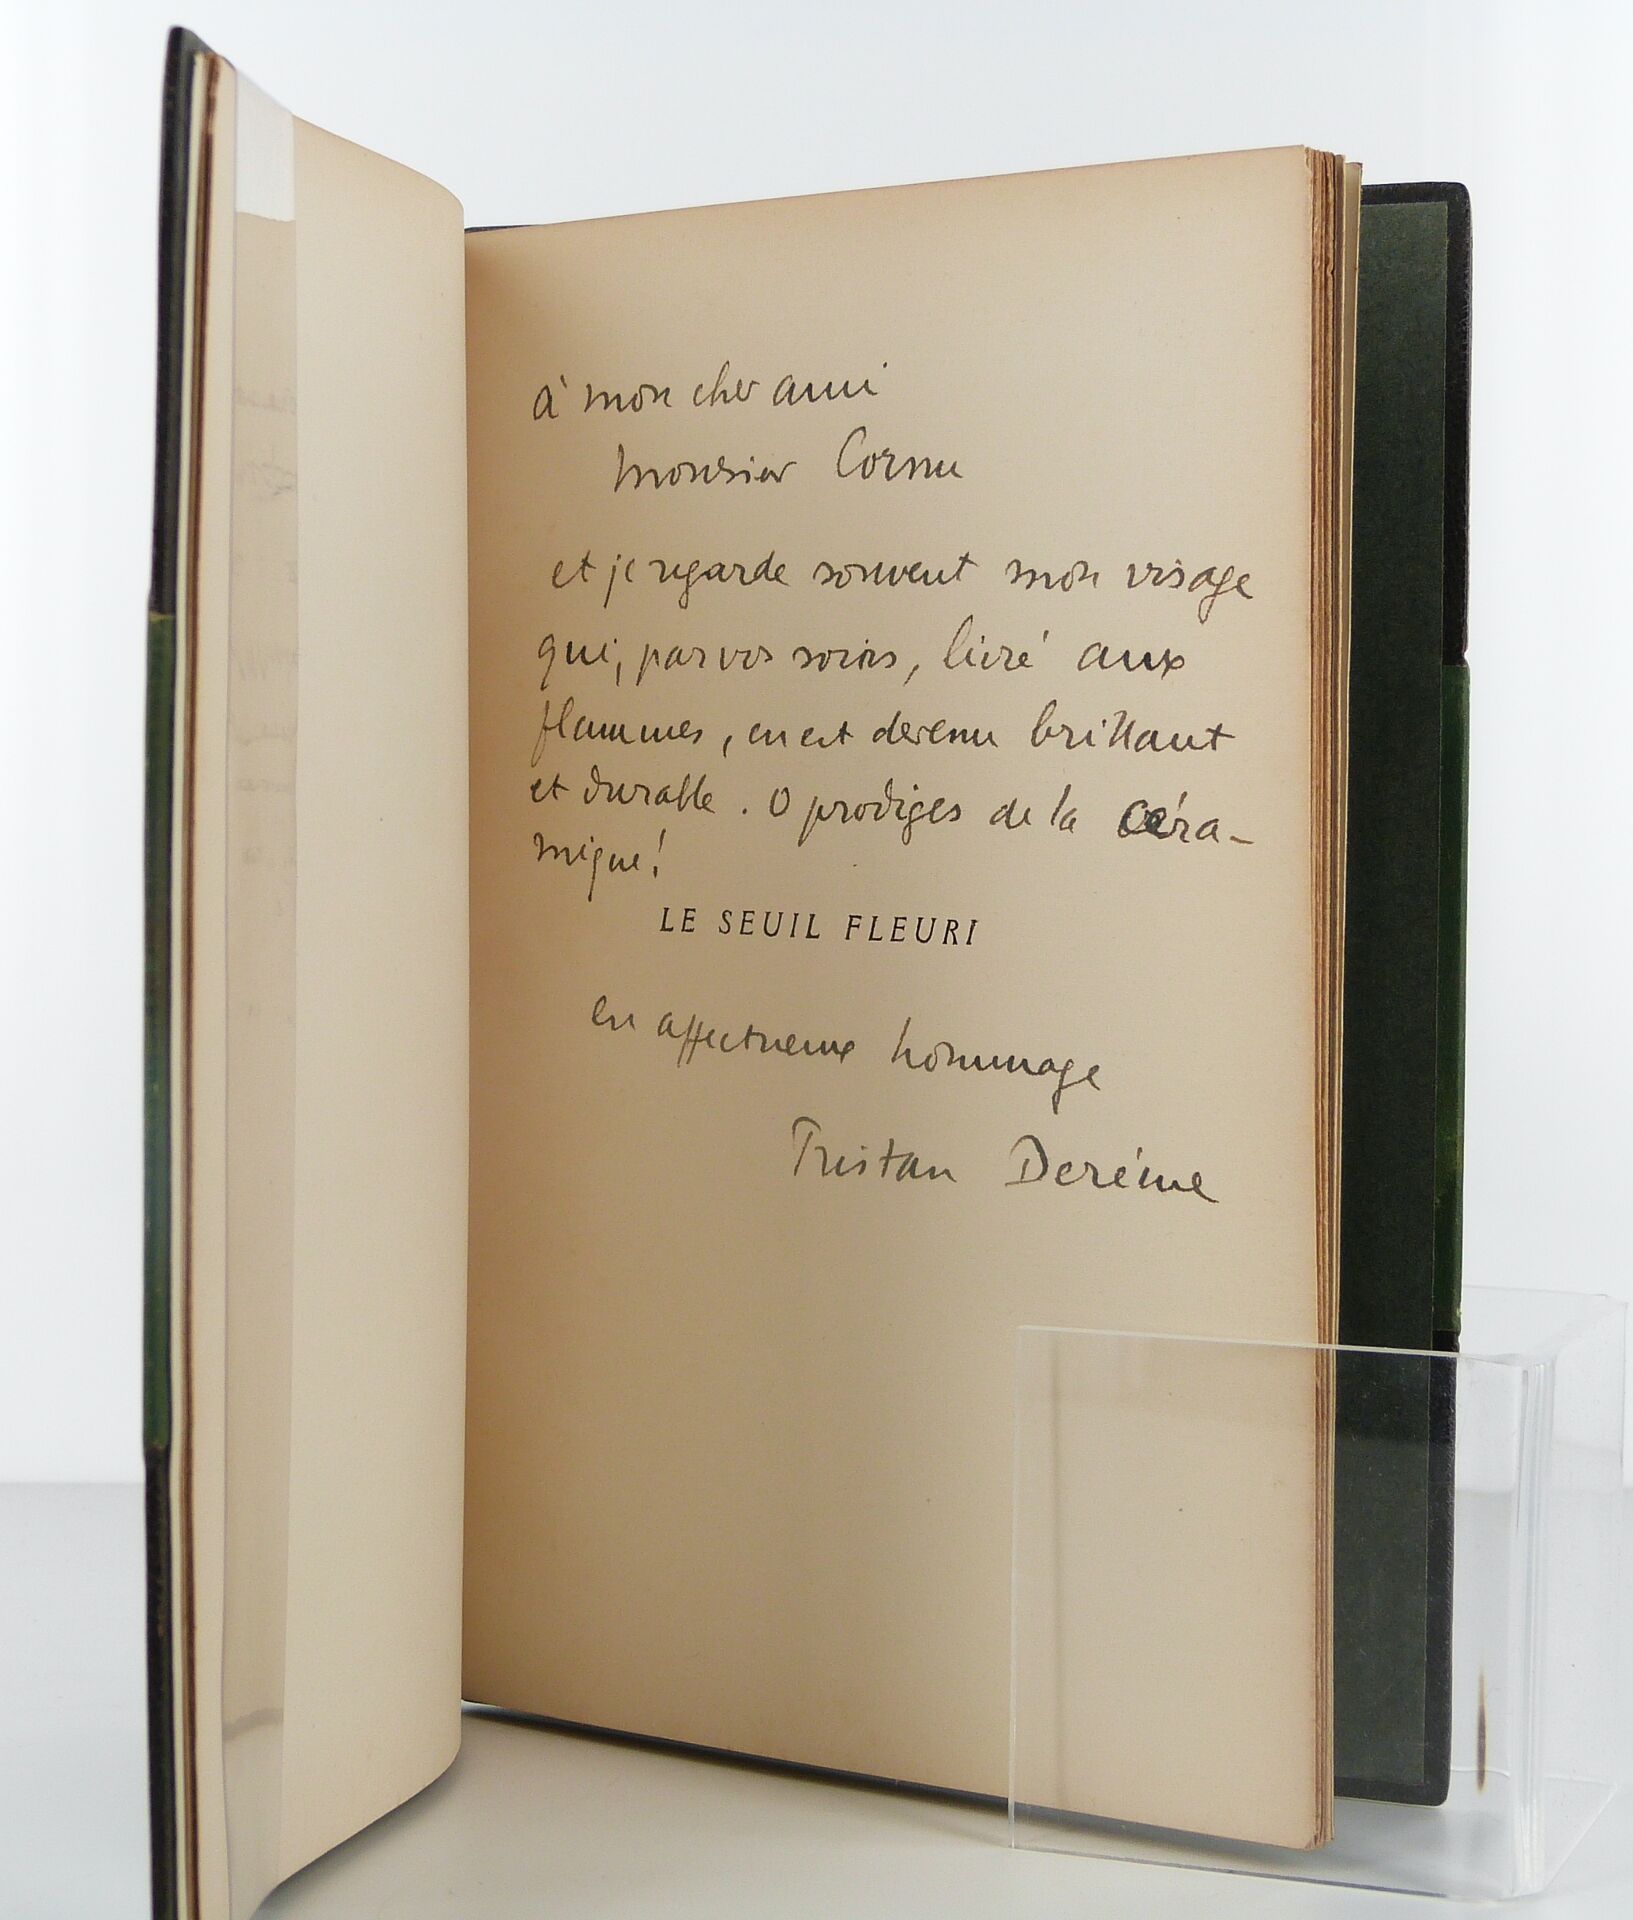 à mon cher ami
Monsieur Cornu
et je regarde souvent mon visage
qui, par vos soins, livré aux
flammes, en est devenu brillant
et durable. O prodiges de la céra-
mique!
LE SEUIL FLEURI
en affectueux hommage
Tristan Derème